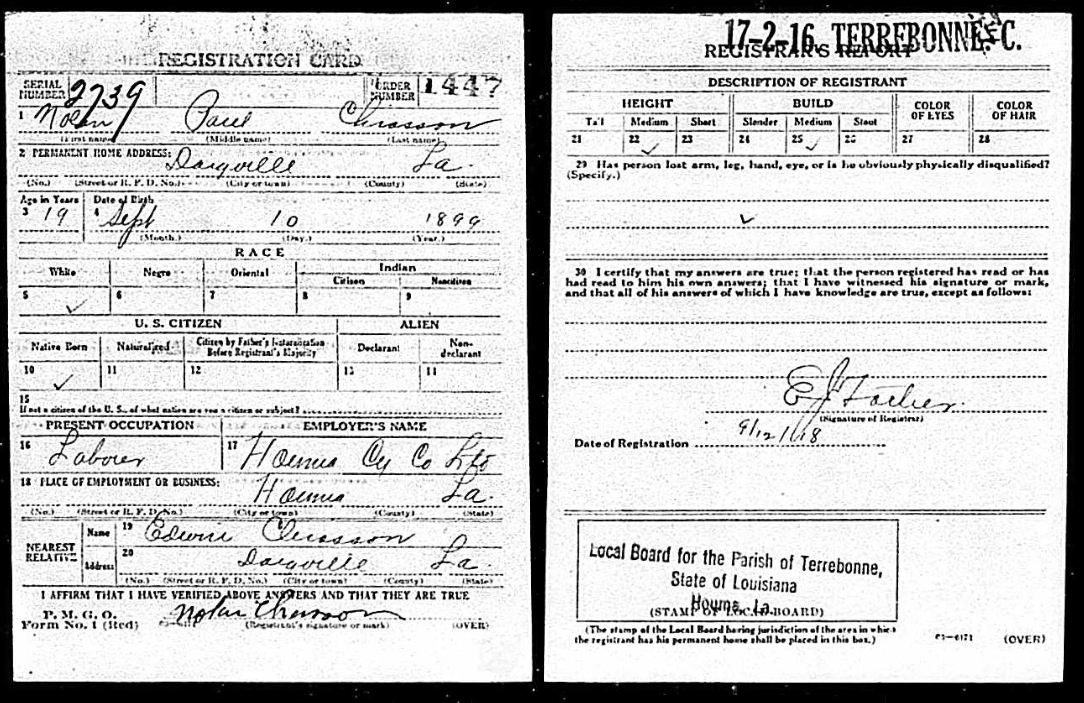 REGISTRATION CARD
SERIAL NUMBER 2739
ORDER NUMBER 1447
1 Nolan Paul Chiasson
(First name) (Middle name) (Last name)
2 PERMANENT HOME ADDRESS: La
(No.) (Street or R. F. D. No.) (City or town) (County) (State)
Age in Years Date of Birth
3 19 4 Sept 10 1899
(Month.) (Day.) (Year.)
RACE
White Negro Oriental Indian
Citizen Noncitizen
5 ✓ 6 7 8 9
U. S. CITIZEN ALIEN
Native Born Naturalized Citizen by Father's Naturalization Before Registrant's Majority Declarant Non-declarant
10 ✓ 11 12 13 14
15
If not a citizen of the U. S., of what nation are you a citizen or subject?
PRESENT OCCUPATION EMPLOYER'S NAME
16 Laborer 17 Houma Co
18 PLACE OF EMPLOYMENT OR BUSINESS:
Houma La.
(No.) (Street or R. F. D. No.) (City or town) (County) (State)
NEAREST RELATIVE Name 19 Chiasson
Address 20 La.
(No.) (Street or R. F. D. No.) (City or town) (County) (State)
I AFFIRM THAT I HAVE VERIFIED ABOVE ANSWERS AND THAT THEY ARE TRUE
P. M. G. O.
Form No. 1 (Red) Nolan Chiasson
(Registrant's signature or mark) (OVER)
17-2-16 TERREBONNE C.
REGISTRAR'S REPORT
DESCRIPTION OF REGISTRANT
HEIGHT BUILD COLOR OF EYES COLOR OF HAIR
Tall Medium Short Slender Medium Stout
21 22 ✓ 23 24 25 ✓ 26 27 28
29 Has person lost arm, leg, hand, eye, or is he obviously physically disqualified?
(Specify.)
✓
30 I certify that my answers are true; that the person registered has read or has
had read to him his own answers; that I have witnessed his signature or mark,
and that all of his answers of which I have knowledge are true, except as follows:
E J
(Signature of Registrar)
Date of Registration 9/12/18
Local Board for the Parish of Terrebonne,
State of Louisiana
Houma, La.
(STAMP OF LOCAL BOARD)
(The stamp of the Local Board having jurisdiction of the area in which
the registrant has his permanent home shall be placed in this box.)
03—6171 (OVER)